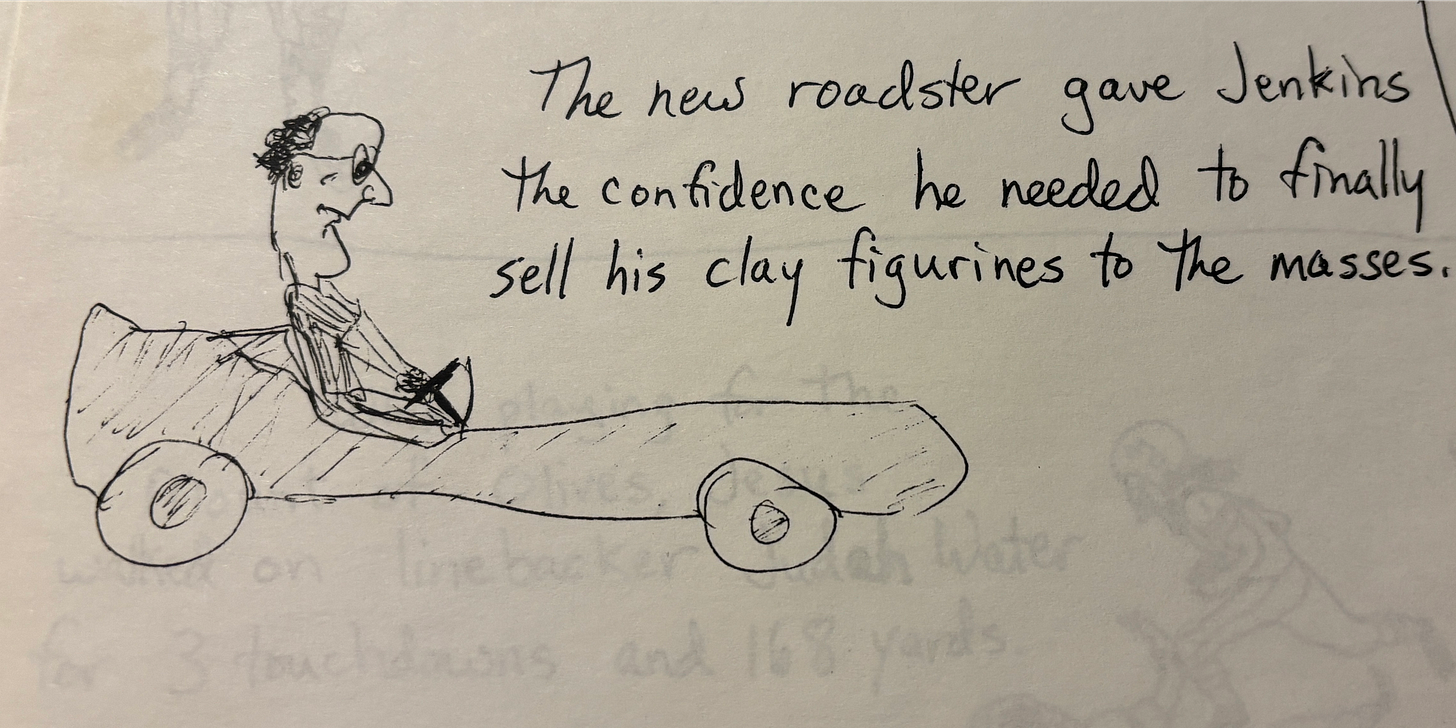 The new roadster gave Jenkins
the confidence he needed to finally
sell his clay figurines to the masses.
playing for the
of Olives, Jesus
walked on linebacker Judah Water
for 3 touchdowns and 168 yards.